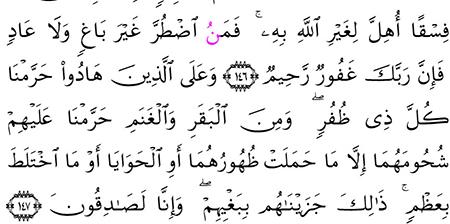 فِسْقًا أُهِلَّ لِغَيْرِ ٱللَّهِ بِهِۦۚ فَمَنُ ٱضْطُرَّ غَيْرَ بَاغٍ وَلَا عَادٍ
فَإِنَّ رَبَّكَ غَفُورٌ رَّحِيمٌ ۝١٤٦ وَعَلَى ٱلَّذِينَ هَادُوا۟ حَرَّمْنَا
كُلَّ ذِى ظُفُرٍۖ وَمِنَ ٱلْبَقَرِ وَٱلْغَنَمِ حَرَّمْنَا عَلَيْهِمْ
شُحُومَهُمَا إِلَّا مَا حَمَلَتْ ظُهُورُهُمَا أَوِ ٱلْحَوَايَا أَوْ مَا ٱخْتَلَطَ
بِعَظْمٍۚ ذَٰلِكَ جَزَيْنَٰهُم بِبَغْيِهِمْۖ وَإِنَّا لَصَٰدِقُونَ ۝١٤٧